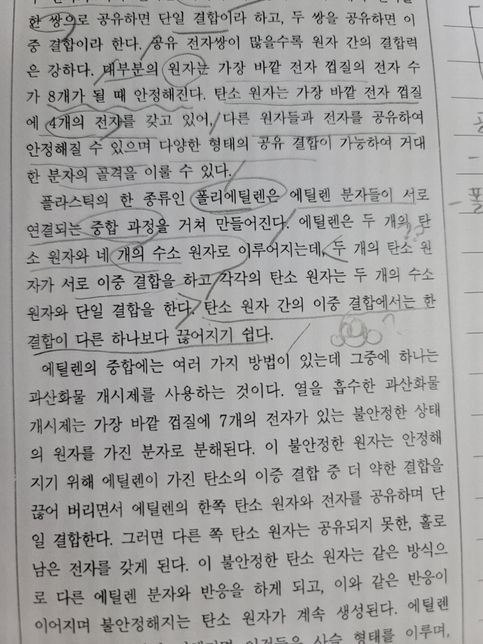 한 쌍으로 공유하면 단일 결합이라 하고, 두 쌍을 공유하면 이
중 결합이라 한다. 공유 전자쌍이 많을수록 원자 간의 결합력
은 강하다. 대부분의 원자는 가장 바깥 전자 껍질의 전자 수
가 8개가 될 때 안정해진다. 탄소 원자는 가장 바깥 전자 껍질
에 4개의 전자를 갖고 있어, 다른 원자들과 전자를 공유하여
안정해질 수 있으며 다양한 형태의 공유 결합이 가능하여 거대
한 분자의 골격을 이룰 수 있다.
플라스틱의 한 종류인 폴리에틸렌은 에틸렌 분자들이 서로
연결되는 중합 과정을 거쳐 만들어진다. 에틸렌은 두 개의 탄
소 원자와 네 개의 수소 원자로 이루어지는데, 두 개의 탄소 원
자가 서로 이중 결합을 하고 각각의 탄소 원자는 두 개의 수소
원자와 단일 결합을 한다. 탄소 원자 간의 이중 결합에서는 한
결합이 다른 하나보다 끊어지기 쉽다.
에틸렌의 중합에는 여러 가지 방법이 있는데 그중에 하나는
과산화물 개시제를 사용하는 것이다. 열을 흡수한 과산화물
개시제는 가장 바깥 껍질에 7개의 전자가 있는 불안정한 상태
의 원자를 가진 분자로 분해된다. 이 불안정한 원자는 안정해
지기 위해 에틸렌이 가진 탄소의 이중 결합 중 더 약한 결합을
끊어 버리면서 에틸렌의 한쪽 탄소 원자와 전자를 공유하며 단
일 결합한다. 그러면 다른 쪽 탄소 원자는 공유되지 못한, 홀로
남은 전자를 갖게 된다. 이 불안정한 탄소 원자는 같은 방식으
로 다른 에틸렌 분자와 반응을 하게 되고, 이와 같은 반응이
이어지며 불안정해지는 탄소 원자가 계속 생성된다. 에틸렌
사슬 형태를 이루며,